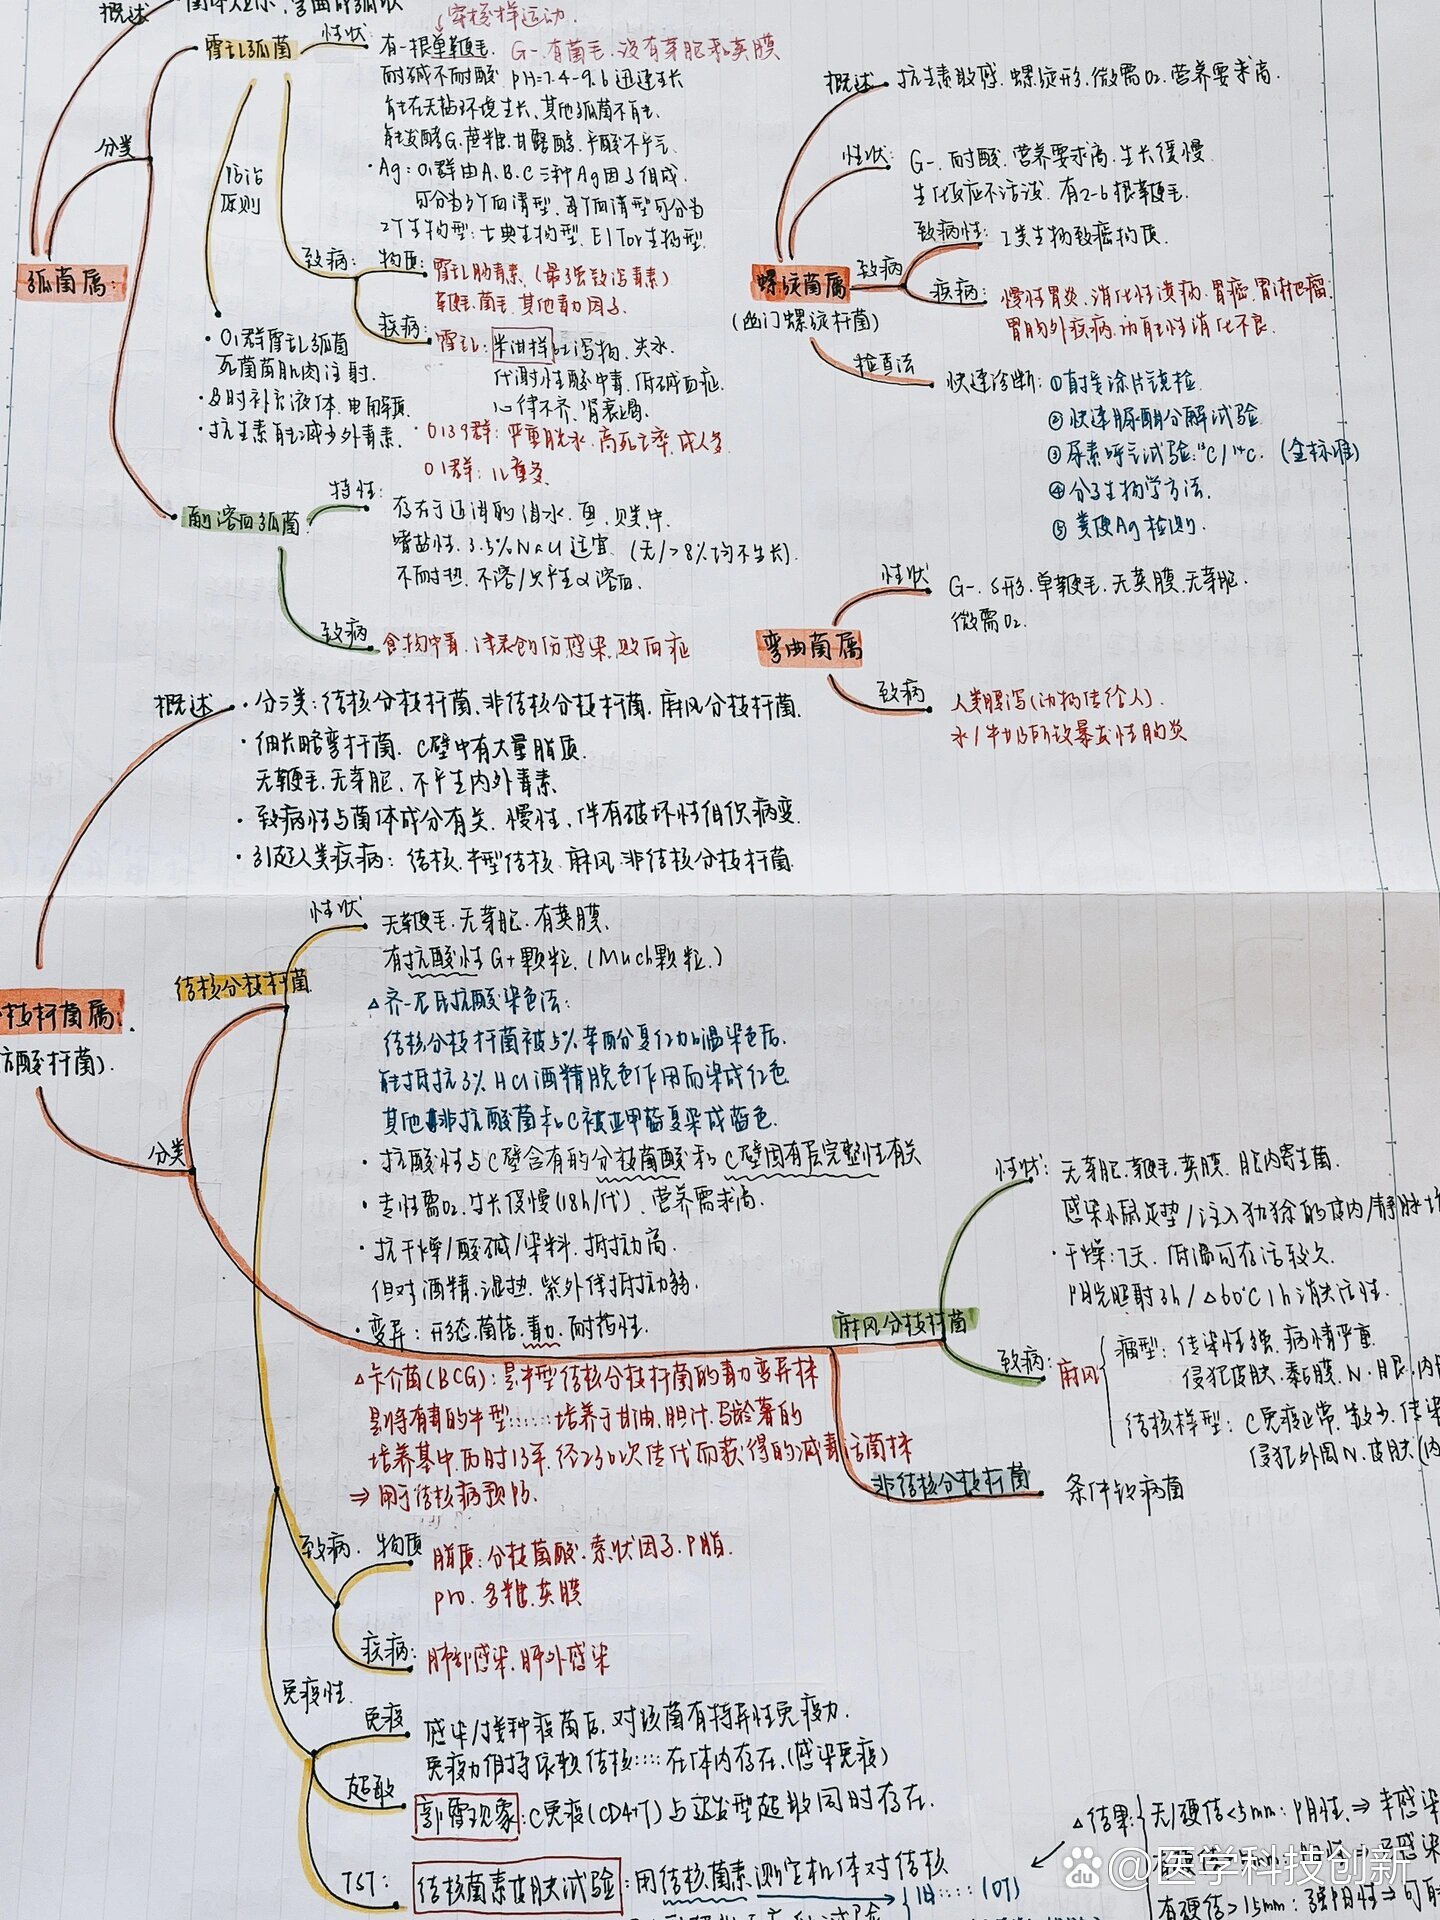 概述
弧菌属:
分类
霍乱弧菌
性状
穿梭样运动.
有一根单鞭毛. G-.有菌毛.没有芽胞和荚膜
耐碱不耐酸 PH=7.4-9.6 迅速生长
能在无盐环境生长、其他弧菌不能.
能发酵G.蔗糖.甘露醇.产酸不产气.
·Ag:O1群由A.B.C三种Ag因子组成.
可分为3个血清型.每个血清型可分为
2个生物型:古典生物型.El Tor生物型.
防治
原则
·O1群霍乱弧菌
死菌苗肌肉注射.
·及时补充液体.电解质.
·抗生素能减少外毒素.
致病:
物质:
霍乱肠毒素.(最强致泻毒素)
鞭毛.菌毛.其他毒力因子.
疾病:
霍乱:米泔样吐泻物.失水.
代谢性酸中毒.低碱血症.
心律不齐.肾衰竭.
·O139群:严重脱水.高死亡率.成人多.
O1群:儿童多.
副溶血弧菌
特性:
存在于近海的海水.鱼.贝类中.
嗜盐性.3.5%NaCl适宜.(无/>8%均不生长).
不耐热.不溶/只产生α溶血.
致病
食物中毒.浅表创伤感染.败血症
螺旋菌属
(幽门螺旋杆菌)
概述
抗生素敏感.螺旋形.微需O2.营养要求高.
性状:
G-.耐酸.营养要求高.生长缓慢.
生化反应不活泼.有2-6根鞭毛.
致病
致病性:
I类生物致癌物质.
疾病:
慢性胃炎.消化性溃疡.胃癌.胃淋巴瘤.
胃肠外疾病.功能性消化不良.
检查法
快速诊断:①直接涂片镜检.
②快速脲酶分解试验
③尿素呼气试验:¹³C/¹⁴C.(金标准)
④分子生物学方法.
⑤粪便Ag检测.
弯曲菌属
性状
G-.S形.单鞭毛.无荚膜.无芽胞.
微需O2.
致病
人类腹泻(动物传给人).
水/牛奶所致暴发性肠炎
枝杆菌属:
抗酸杆菌).
概述
·分三类:结核分枝杆菌.非结核分枝杆菌.麻风分枝杆菌.
·细长略弯杆菌.C壁中有大量脂质.
无鞭毛.无芽胞.不产生内外毒素.
·致病性与菌体成分有关.慢性.伴有破坏性组织病变.
·引起人类疾病:结核.牛型结核.麻风.非结核分枝杆菌.
分类
结核分枝杆菌
性状
无鞭毛.无芽胞.有荚膜.
有抗酸性G+颗粒.(Much颗粒.)
△齐-尼氏抗酸染色法:
结核分枝杆菌被5%苯酚复红加温染色后.
能抵抗3%HCl酒精脱色作用而染成红色
其他非抗酸菌和C被亚甲蓝复染成蓝色.
·抗酸性与C壁含有的分枝菌酸和C壁固有层完整性有关
·专性需O2.生长缓慢(18h/代).营养需求高.
·抗干燥/酸碱/染料.抵抗力高.
但对酒精.湿热.紫外伴抵抗力弱.
·变异:形态.菌落.毒力.耐药性.
△卡介菌(BCG):是牛型结核分枝杆菌的毒力变异株
是将有毒的牛型……培养于甘油.胆汁.马铃薯的
培养基中.历时13年.经230次传代而获得的减毒活菌株
⇒用于结核病预防.
致病.
物质
脂质:分枝菌酸.索状因子.P脂.
pro.多糖.荚膜
疾病:
肺部感染.肺外感染
免疫性.
免疫
感染/接种疫苗后.对该菌有特异性免疫力.
免疫力维持依赖结核……在体内存在.(感染免疫)
超敏
郭霍现象:C免疫(CD4+T)与迟发型超敏同时存在.
TST:
结核菌素皮肤试验:用结核菌素.测定机体对结核
旧……(OT)
△结果:
无/硬结<5mm:阴性.⇒未感染
有硬结>15mm:强阳性⇒可能
麻风分枝杆菌
性状:
无芽胞.鞭毛.荚膜.胞内寄生菌.
感染小鼠足垫/注入犰狳的皮内/静脉
·干燥:7天.低温可存活较久.
阳光照射3h/△60℃1h消失活性.
致病:
麻风
瘤型:传染性强.病情严重.
侵犯皮肤.黏膜.N.眼.内
结核样型:C免疫正常.
侵犯外周N.皮肤(内
非结核分枝杆菌
条件致病菌
@医学科技创新